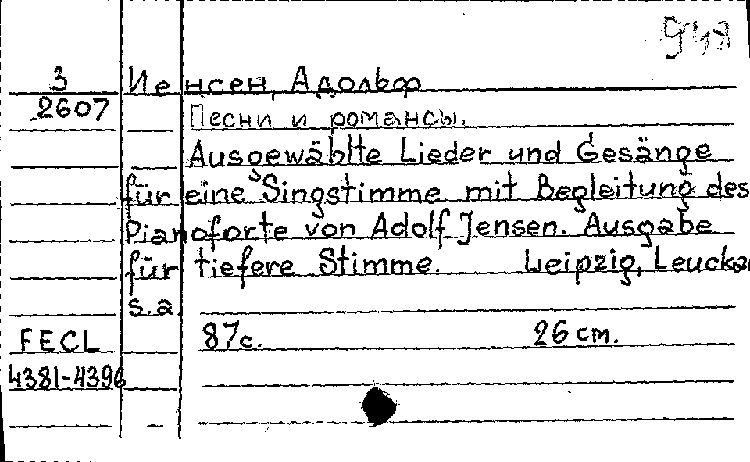 948
3 Иенсен, Адольф
2607 Песни и романсы.
Ausgewählte Lieder und Gesänge
für eine Singstimme mit Begleitung des
Pianoforte von Adolf Jensen. Ausgabe
für tiefere Stimme. Leipzig, Leucka
s.a.
FECL 87с. 26 см.
4381-4396